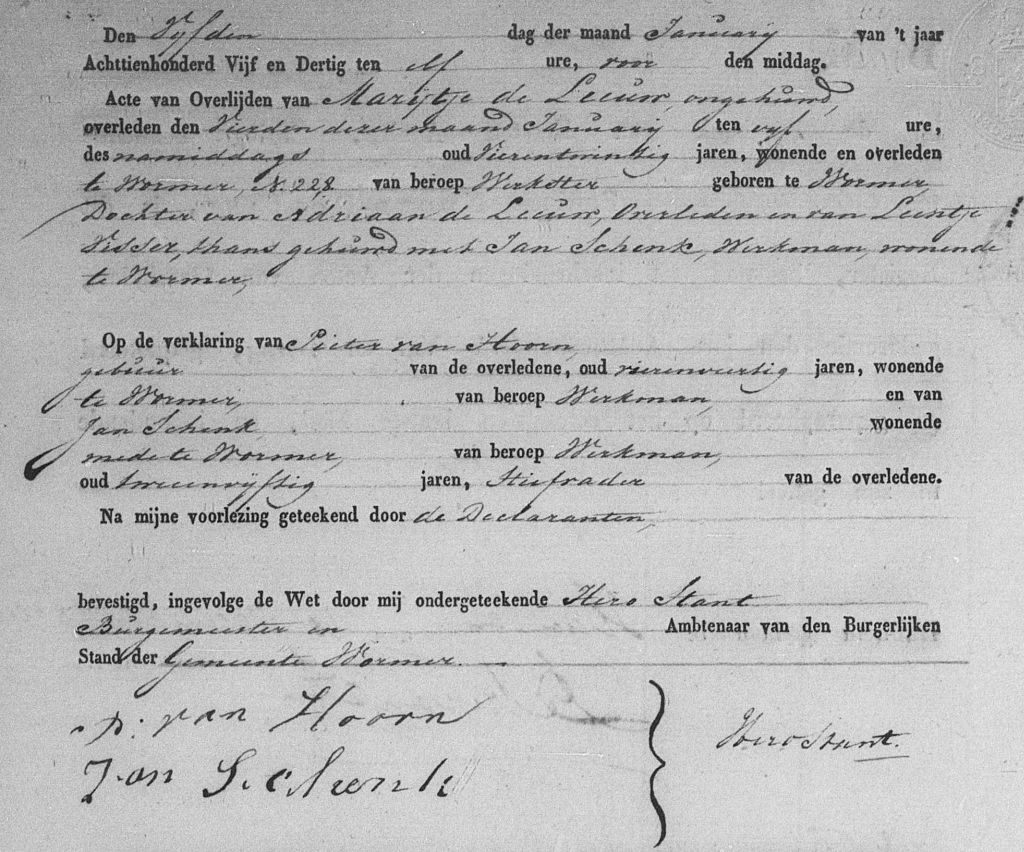 Den Vyfden dag der maand January van 't jaar
Achttienhonderd Vijf en Dertig ten elf ure, voor den middag.
Acte van Overlijden van Marijtje de Leeuw, ongehuwd,
overleden den Vierden dezer maand January ten vyf ure,
des namiddags oud Vierentwintig jaren, wonende en overleden
te Wormer, N. 228, van beroep Werkster geboren te Wormer,
Dochter van Adriaan de Leeuw, Overleden en van Leentje
Visser, thans gehuwd met Jan Schenk, Werkman, wonende
te Wormer,
Op de verklaring van Pieter van Hoorn,
gebuur van de overledene, oud vierenveertig jaren, wonende
te Wormer, van beroep Werkman, en van
Jan Schenk, wonende
mede te Wormer, van beroep Werkman,
oud tweenvyftig jaren, Stiefvader van de overledene.
Na mijne voorlezing geteekend door de Declaranten,
bevestigd, ingevolge de Wet door mij ondergeteekende Hero Stant
Burgemeester en Ambtenaar van den Burgerlijken
Stand der Gemeente Wormer.
p: van Hoorn
Hero Stant.
Jan Schenk